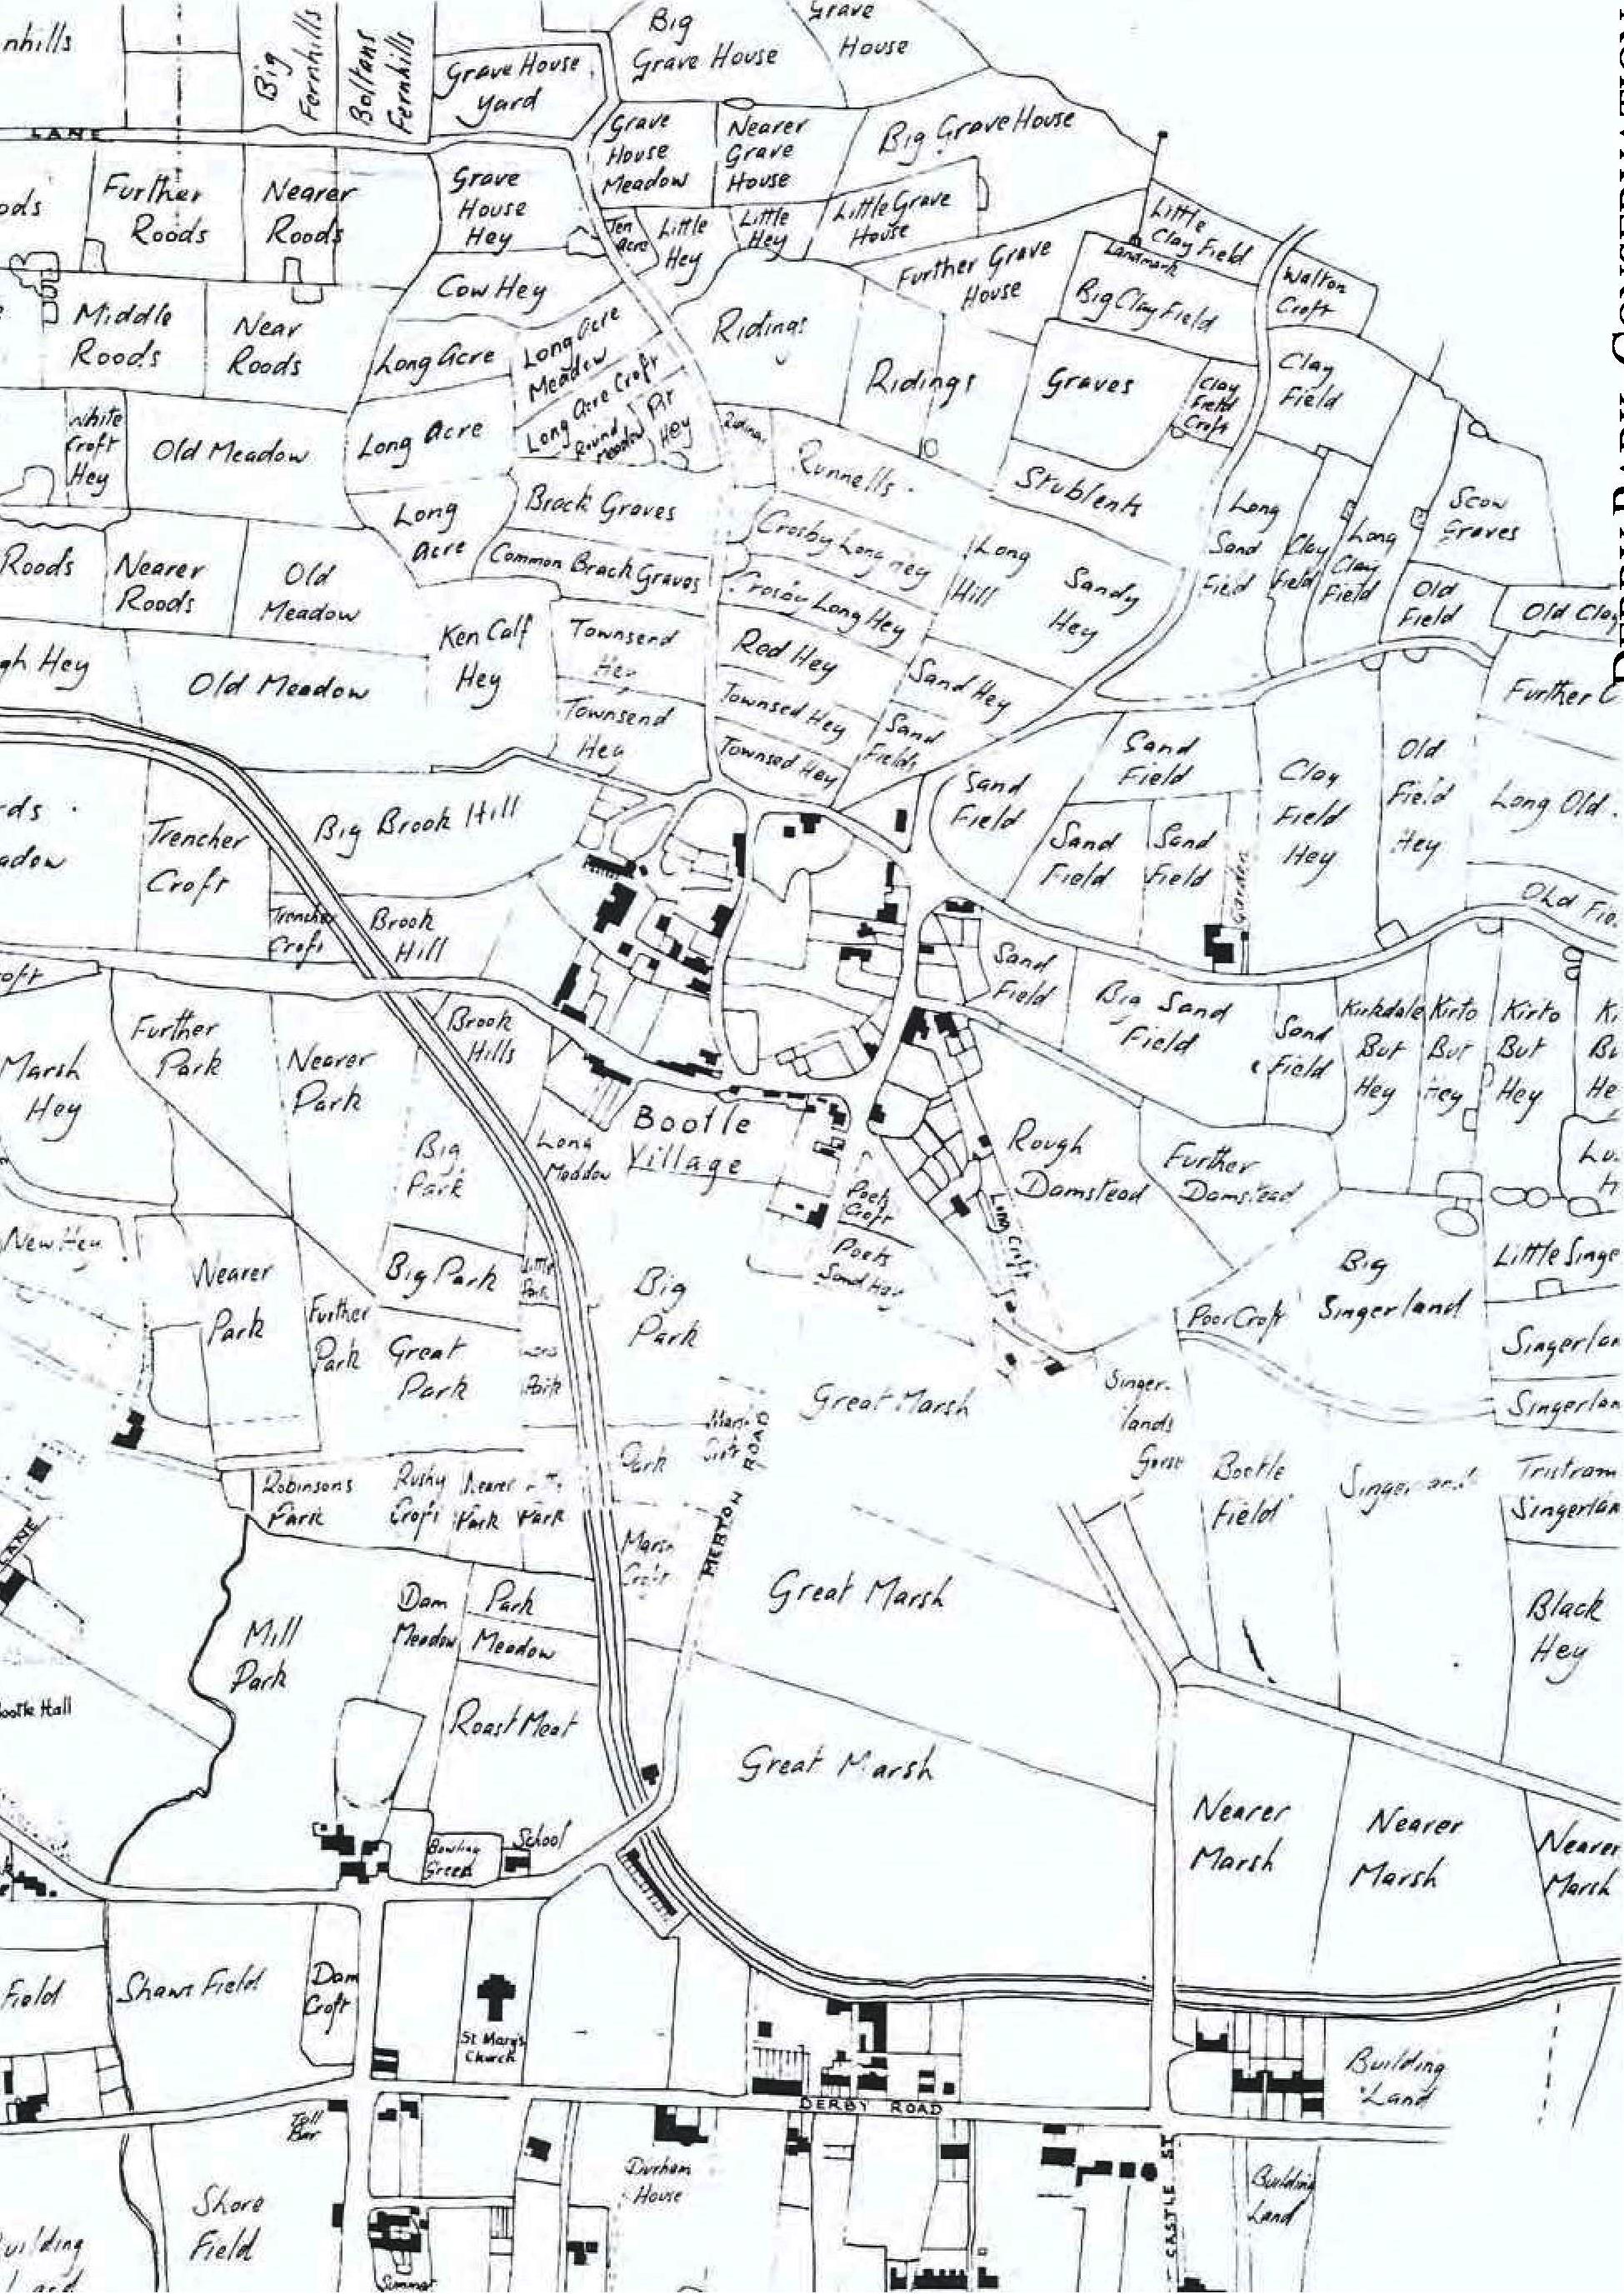 nhills
Big
Fernhills
Boltons
Fernhills
Grave House
Yard
Big
Grave House
Grave
House
LANE
Grave
House
Meadow
Nearer
Grave
House
Big Grave House
Further
Roods
Nearer
Roods
Grave
House
Hey
Ten
Acre
Little
Hey
Little
Hey
Little Grave
House
Little
Clay Field
Landmark
Walton
Croft
Cow Hey
Further Grave
House
Big Clay Field
Middle
Roods
Near
Roods
Long Acre
Long Acre
Meadow
Long Acre Croft
Round
Meadow
Pit
Hey
Ridings
Ridings
Graves
Clay
Field
Croft
Clay
Field
White
Croft
Hey
Old Meadow
Long Acre
Ridings
Runnells
Stublents
Long
Acre
Brack Graves
Common Brack Graves
Crosby Long Hey
Crosby Long Hey
Long
Hill
Sandy
Hey
Long
Sand
Field
Clay
Field
Long
Clay
Field
Scow
Graves
Old
Field
Old Clay
Roods
Nearer
Roods
Old
Meadow
Ken Calf
Hey
Townsend
Hey
Townsend
Hey
Rod Hey
Townsed Hey
Townsed Hey
Sand Hey
Sand
Fields
gh Hey
Old Meadow
Further
Sand
Field
Sand
Field
Sand
Field
Sand
Field
Garden
Clay
Field
Hey
Old
Field
Hey
Long Old
Old Fie
Trencher
Croft
Big Brook Hill
Trencher
Croft
Brook
Hill
Brook
Hills
Sand
Field
Big Sand
Field
Sand
Field
Kirkdale
But
Hey
Kirto
But
Hey
Kirto
But
Hey
Marsh
Hey
Further
Park
Nearer
Park
Big
Park
Long
Meadow
Bootle
Village
Rough
Damstead
Further
Damstead
Long Croft
New Hey
Nearer
Park
Further
Park
Big Park
Little
Park
Great
Park
Park
Big
Park
Poor Croft
Big
Singerland
Little Singe
Singerlan
Singerlan
Great Marsh
Singer-
lands
Gorse
Bootle
Field
Tristram
Singerlan
Robinsons
Park
Rushy
Croft
Nearer
Park
Park
Park
Marsh
Croft
Marsh
Croft
MERTON ROAD
LANE
Mill
Park
Dam
Meadow
Park
Meadow
Great Marsh
Black
Hey
Bootle Hall
Roast Meat
Great Marsh
Nearer
Marsh
Nearer
Marsh
Nearer
Marsh
Bowling
Green
School
Field
Shaws Field
Dam
Croft
St Mary's
Church
Building
Land
DERBY ROAD
Toll
Bar
Shore
Field
Durham
House
CASTLE ST
Building
Land
Summer